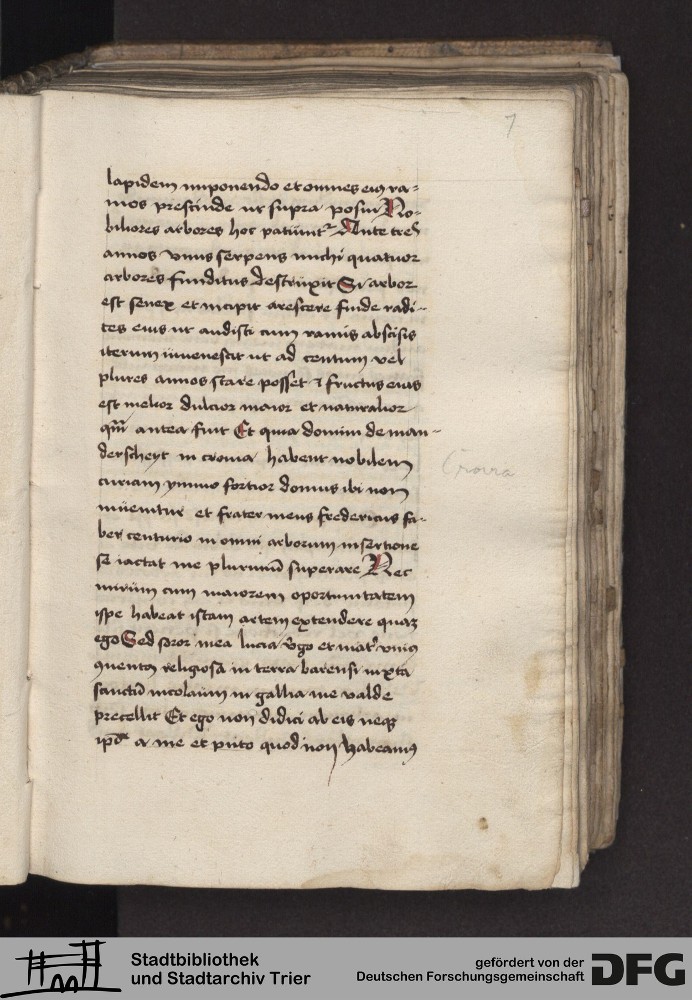 7
lapidem imponendo et omnes eiꝯ ra-
mos prescinde ut supra posui No-
biliores arbores hoc patiūntᷣ Ante tres
annos vnus serpens michi quatuor
arbores funditus destruxit Si arbor
est senex et incipit arescere finde radi-
ces eius ut audisti cum ramis abscisis
iterum iuuenescit ut ad centum vel
plures annos stare posset ⁊ fructus eius
est melior dulcior maior et naturalior
qm̄ antea fuit Et quia domini de man-
derscheyt in crouia habent nobilem
curiam ymmo fortior domus ibi non
inuenitur et frater meus fredericus fa-
ber centurio in omni arborum insertione
se iactat me plurimū superare Nec
mirum cum maiorem oportunitatem
ipse habeat istam artem extendere quaꝫ
ego Sed soror mea lucia v̓go et mat̓ vniꝯ
ꝯuentꝯ religiosa in terra barensi iuxta
sanctū nicolaum in gallia me valde
precellit Et ego non didici ab eis neqꝫ
a me et puto quod non habeamꝯ
Crovia
Stadtbibliothek
und Stadtarchiv Trier
gefördert von der
Deutschen Forschungsgemeinschaft
DFG